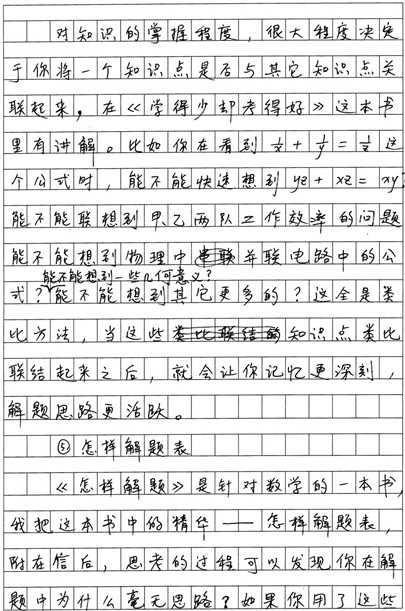 对知识的掌握程度，很大程度决定
于你将一个知识点是否与其它知识点关
联起来，在《学得少却考得好》这本书
里有讲解。比如你在看到 1/x + 1/y = 1/z 这
个公式时，能不能快速想到 yz + xz = xy?
能不能联想到甲乙两队工作效率的问题
能不能想到物理中并联电路中的公
能不能想到一些几何意义？
式？能不能想到其它更多的？这全是类
比方法，当这些类比联结的知识点类比
联结起来之后，就会让你记忆更深刻，
解题思路更活跃。
⑤怎样解题表
《怎样解题》是针对数学的一本书，
我把这本书中的精华——怎样解题表，
附在信后，思考的过程可以发现你在解
题中为什么毫无思路？如果你用了这些